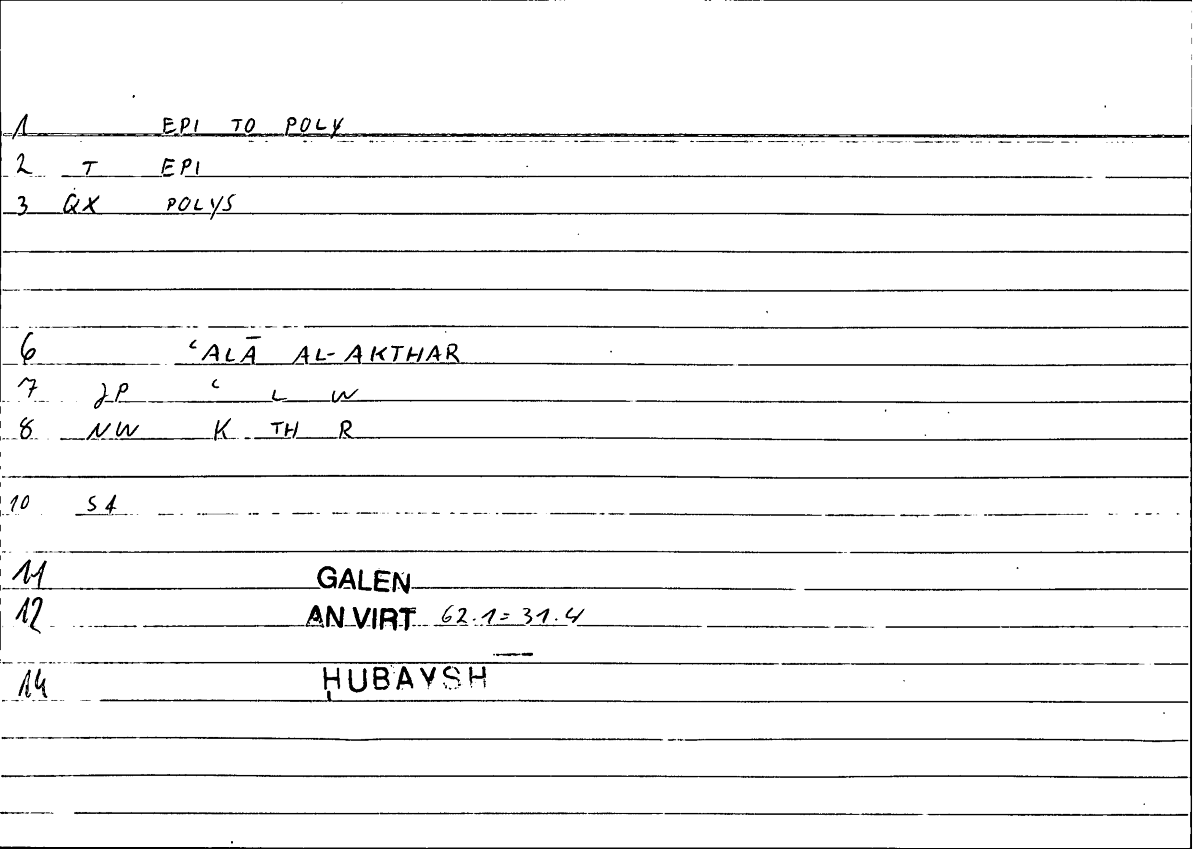 1 EPI TO POLY
2 T EPI
3 QX POLYS
6 ʿALĀ AL-AKTHAR
7 JP ʿ L W
8 NW K TH R
10 S4
11 GALEN
12 AN VIRT 62.1=31.4
14 ḤUBAYSH